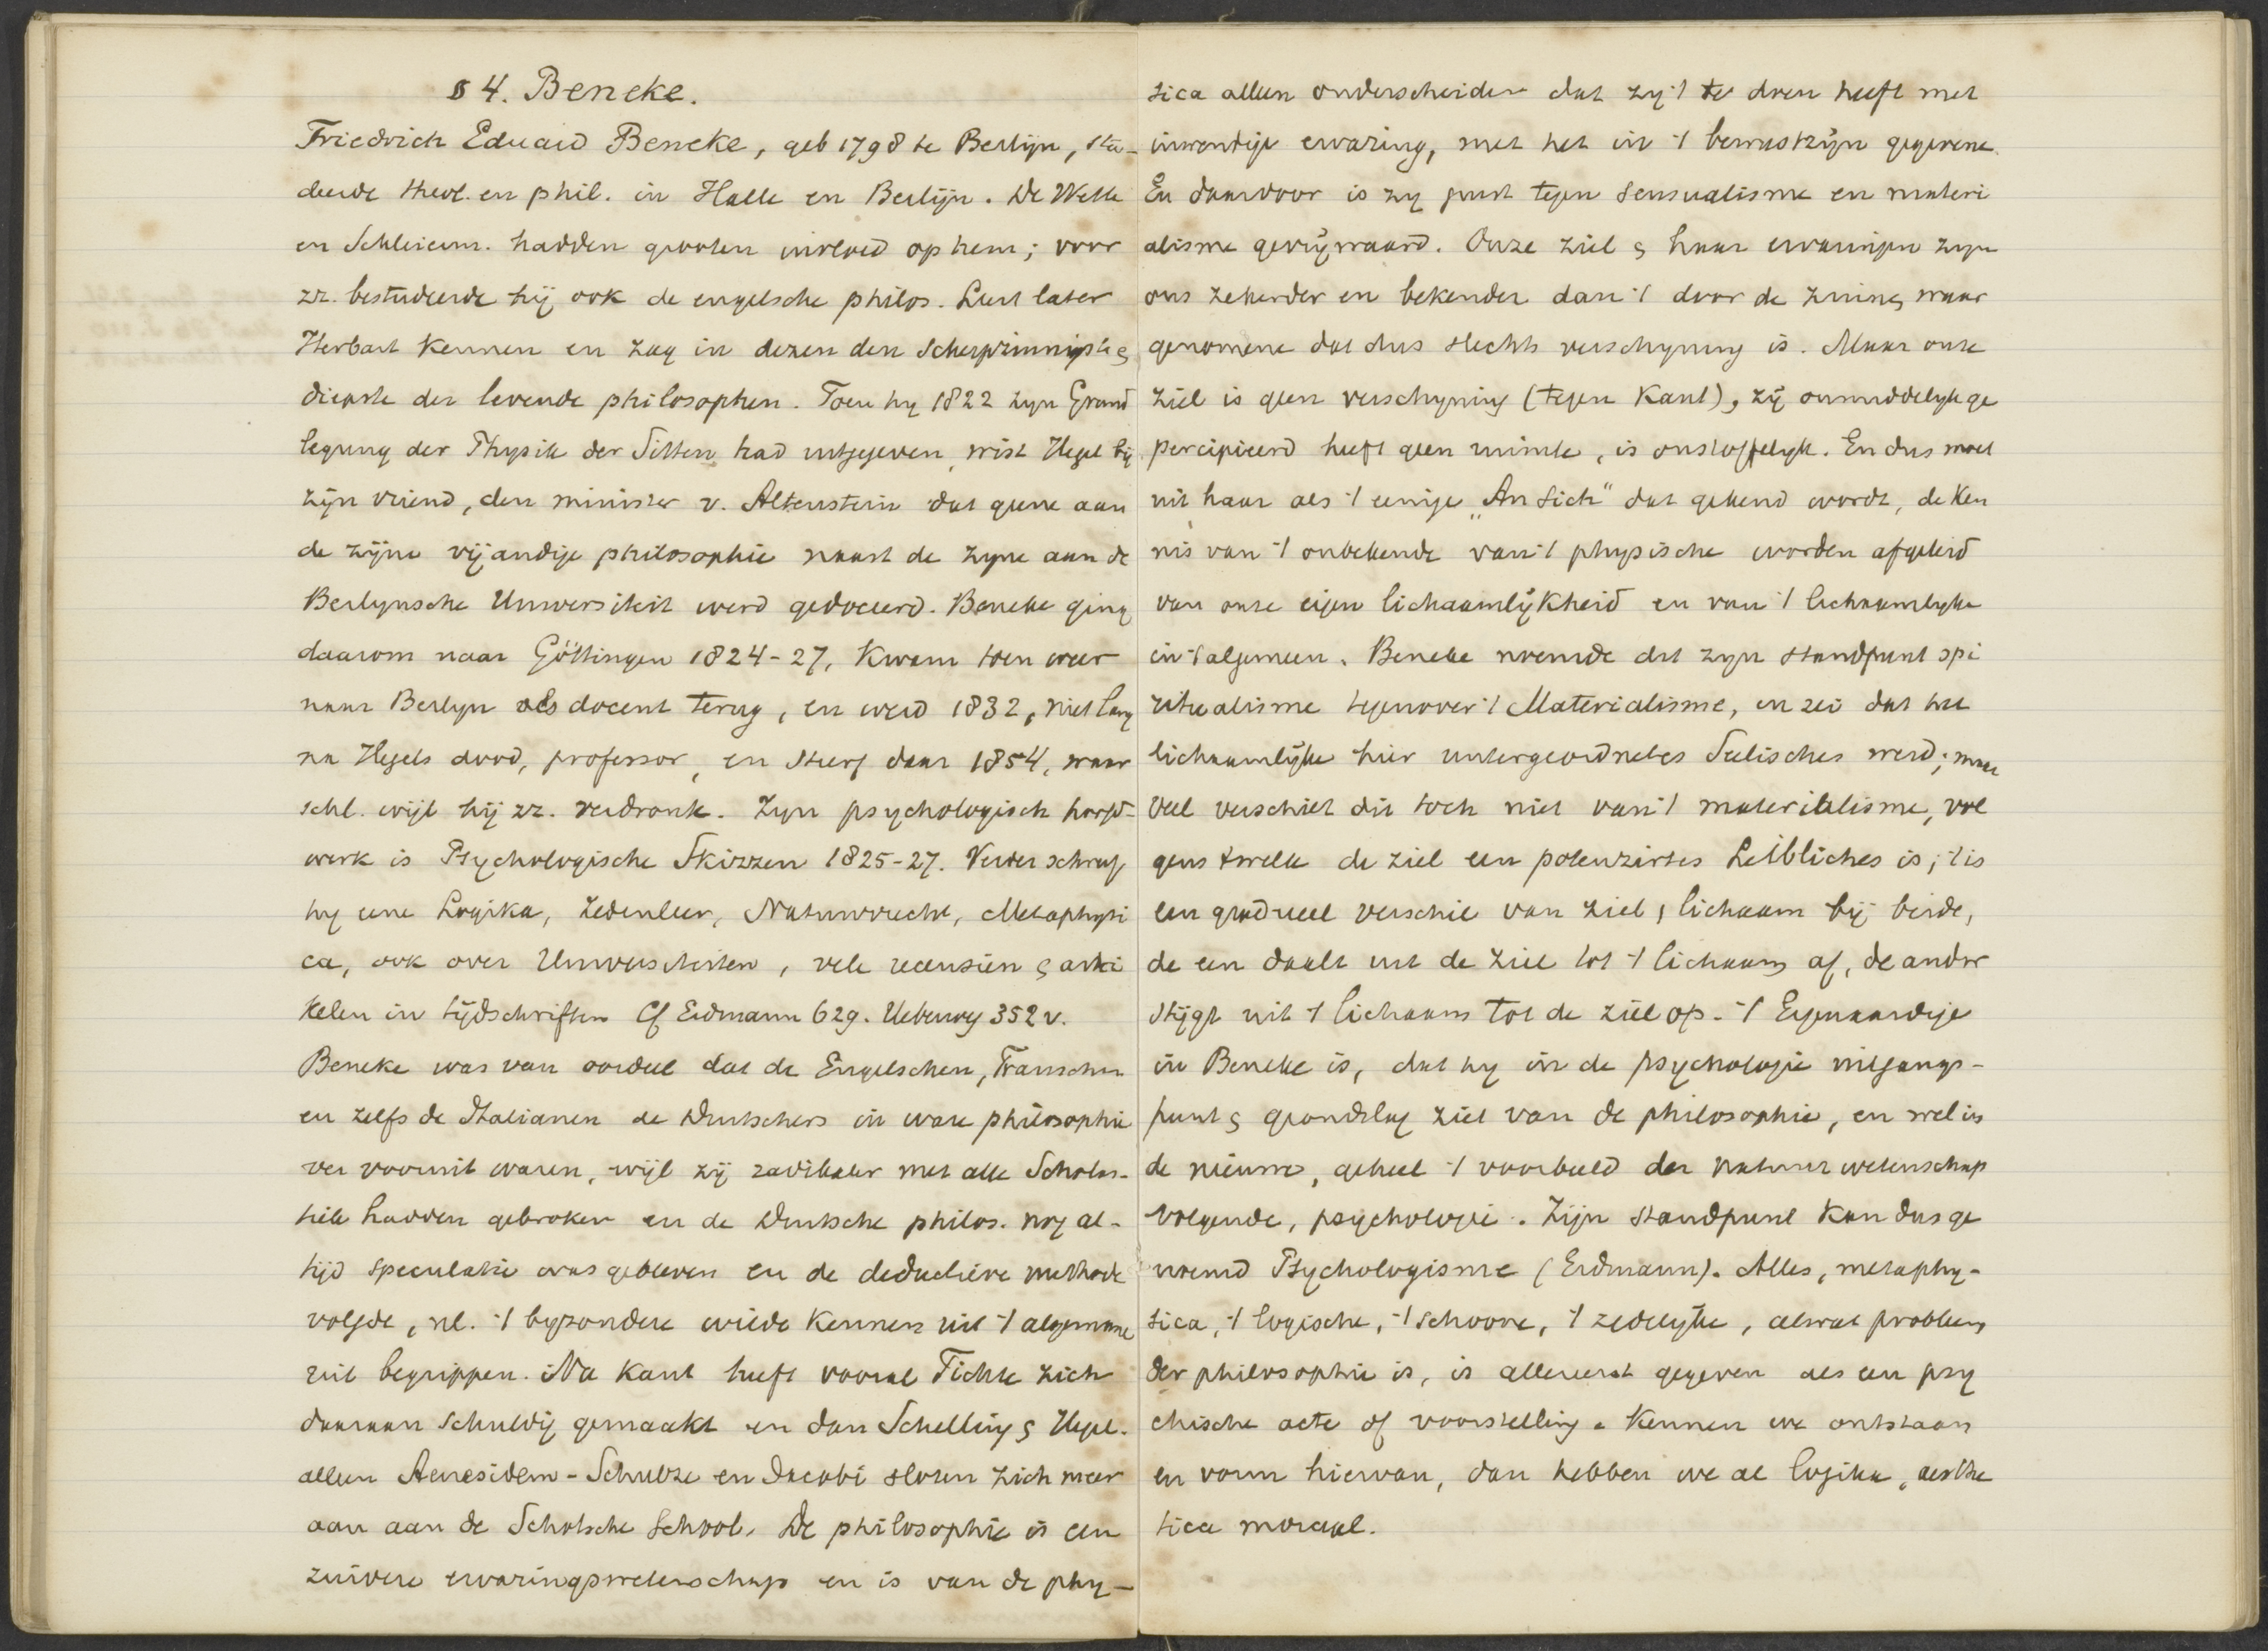 § 4. Beneke.
Friedrich Eduard Beneke, geb 1798 te Berlijn, stu-
deerde theol. en phil. in Halle en Berlijn. De Wette
en Schleierm. hadden grooten invloed op hem; voor
zr. bestudeerde hij ook de engelsche philos. Leert later
Herbart kennen en zag in dezen den scherpzinnigste &
diepste der levende philosophen. Toen hy 1822 zyn Grund
legung der Physik der Sitten had uitgegeven, wist Hegel bij
zijn vriend, den minister v. Altenstein dat geene aan
de zijne vijandige philosophie naast de zyne aan de
Berlynsche Universiteit werd gedoceerd. Beneke ging
daarom naar Göttingen 1824-27, kwam toen weer
naar Berlyn als docent terug, en werd 1832, niet lang
na Hegels dood, professor, en stierf daar 1854, waar
schl. wijl hij zr. verdronk. Zyn psychologisch hoofd-
werk is Psychologische Skizzen 1825-27. Verder schreef
hy eene Logika, Zedenleer, Natuurrecht, Metaphysi
ca, ook over Universiteiten, vele recensien & arti
kelen in tijdschriften Cf Erdmann 629. Ueberweg 352 v.
Beneke was van oordeel dat de Engelschen, Franschen
en zelfs de Italianen de Duitschers in ware philosophie
ver vooruit waren, wijl zij radikaler met alle Scholas-
tiek hadden gebroken en de Duitsche philos. nog al-
tijd speculatie was gebleven en de deductieve methode
volgde, nl. 't byzondere wilde kennen uit 't algemeene
uit begrippen. Na Kant heeft vooral Fichte zich
daaraan schuldig gemaakt en dan Schelling & Hegel.
alleen Aenesidem-Schulze en Jacobi sloten zich meer
aan aan de Schotsche School. De philosophie is een
zuivere ervaringswetenschap en is van de phy-
sica alleen onderscheiden dat zy 't te doen heeft met
inwendige ervaring, met het in 't bewustzijn gegevene.
En daardoor is zy juist tegen sensualisme en materi
alisme gevrijwaard. Onze ziel & haar ervaringen zyn
ons zekerder en bekender dan 't door de zinnen waar
genomene dat dus slechts verschyning is. Maar onze
ziel is geen verschyning (tegen Kant), zij onmiddelyk ge
percipieerd heeft geen ruimte, is onstoffelyk. En dus moet
uit haar als 't eenige „An Sich" dat gekend wordt, de ken
nis van 't onbekende van 't physische worden afgeleid
van onze eigen lichaamlijkheid en van 't lichaamlyke
in 't algemeen. Beneke noemde dit zyn standpunt spi
ritualisme tegenover 't Materialisme, en zei dat het
lichaamlijke hier untergeordnetes Seelisches werd; maar
veel verschilt dit toch niet van 't materialisme, vol
gens 'twelk de ziel een potenzirtes Leibliches is; 't is
een gradueel verschil van ziel & lichaam bij beide,
de een daalt uit de ziel tot 't lichaam af, de ander
stijgt uit 't lichaam tot de ziel op. 't Eigenaardige
in Beneke is, dat hy in de psychologie uitgangs-
punt & grondslag ziet van de philosophie, en wel in
de nieuwe, geheel 't voorbeeld der natuurwetenschap
volgende, psychologie. Zijn standpunt kan dus ge
noemd Psychologisme (Erdmann). Alles, metaphy-
sica, 't logische, 't schoone, 't zedelijke, alwat probleem
der philosophie is, is allereerst gegeven als een psy
chische acte of voorstelling. Kennen we ontstaan
en vorm hiervan, dan hebben we al logika, aesthe
tica moraal.